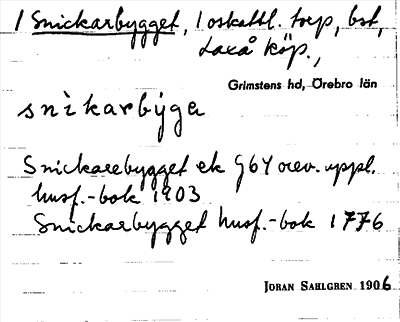 / Snickarbygget, 1 oskattl. torp, bst,
Laxå köp.,
Grimstens hd, Örebro län
snikarbýga
Snickarebygget ek G64 orev. uppl.
husf.-bok 1903
Snickarbygget husf.-bok 1776
JORAN SAHLGREN 1906